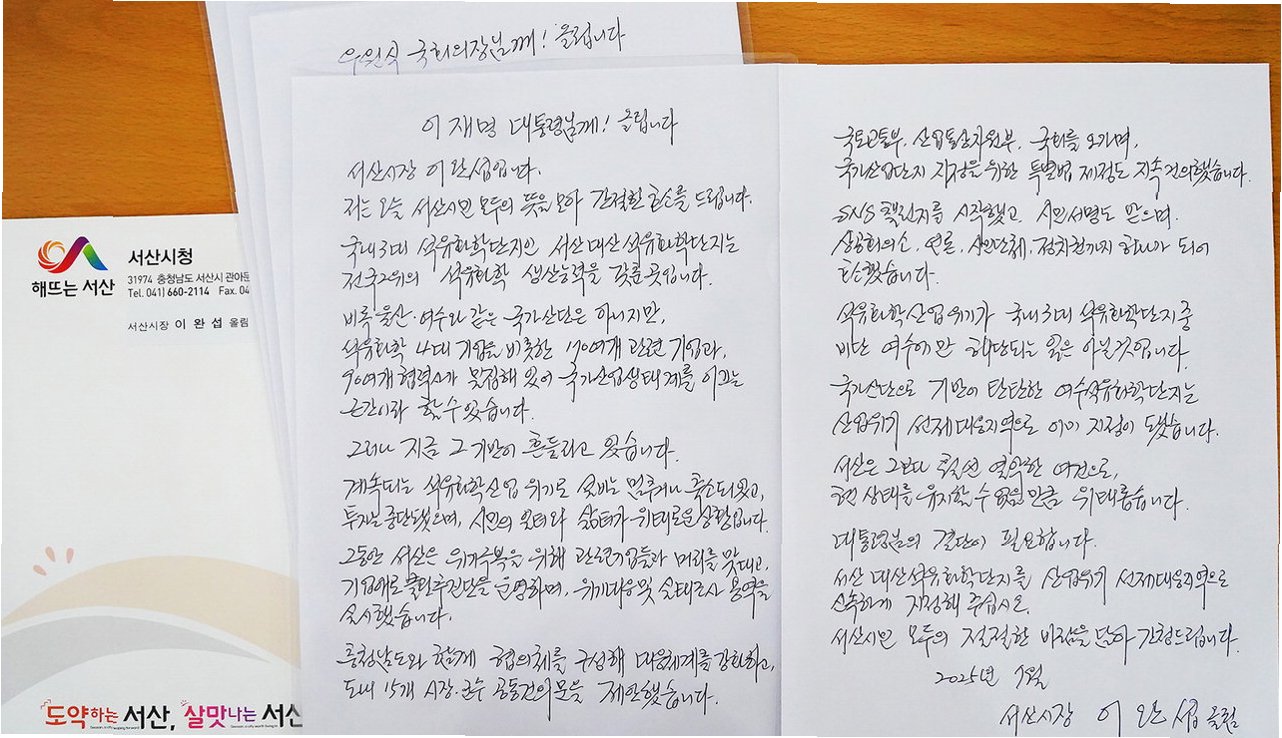 우원식 국회의장님께! 올립니다
이재명 대통령님께! 올립니다
서산시장 이완섭입니다.
저는 오늘 서산시민 모두의 뜻을 모아 간절한 호소를 드립니다.
국내 3대 석유화학단지인 서산 대산 석유화학단지는
전국 2위의 석유화학 생산능력을 갖춘 곳입니다.
비록 울산·여수와 같은 국가산단은 아니지만,
석유화학 4대 기업을 비롯한 70여개 관련 기업과,
90여개 협력사가 밀집해 있어 국가산업생태계를 이끄는
공간이라 할 수 있습니다.
그러나 지금 그 기반이 흔들리고 있습니다.
계속되는 석유화학산업 위기로 설비는 멈추거나 축소되었고,
투자는 중단됐으며, 시민의 일터와 삶터가 위태로운 상황입니다.
그동안 서산은 위기극복을 위해 관련기업들과 머리를 맞대고,
기업애로 물리추진단을 운영하며, 위기대응 및 실태조사 용역을
실시했습니다.
충청남도와 함께 협의체를 구성해 대응체계를 강화하고,
도내 15개 시장·군수 공동건의문을 제안했습니다.
국토교통부, 산업통상자원부, 국회를 오가며,
국가산업단지 지정을 위한 특별법 제정도 지속 건의했습니다.
SNS 챌린지를 시작했고, 시민서명도 받으며,
상공회의소, 언론, 시민단체, 정치권까지 하나가 되어
호소했습니다.
석유화학산업 위기가 국내 3대 석유화학단지 중
비단 여수에만 해당되는 일은 아닐 것입니다.
국가산단으로 기반이 탄탄한 여수석유화학단지는
산업위기 선제대응지역으로 이미 지정이 됐습니다.
서산은 그보다 훨씬 열악한 여건으로,
현 상태를 유지할 수 없을 만큼 위태롭습니다.
대통령님의 결단이 필요합니다.
서산 대산석유화학단지를 산업위기 선제대응지역으로
신속하게 지정해 주십시오.
서산시민 모두의 절절한 바람을 담아 간청드립니다.
2025년 7월
서산시장 이완섭 올림
해뜨는 서산
서산시청
31974 충청남도 서산시 관아문
Tel. 041) 660-2114 Fax. 04
서산시장 이완섭 올림
도약하는 서산, 살맛나는 서산